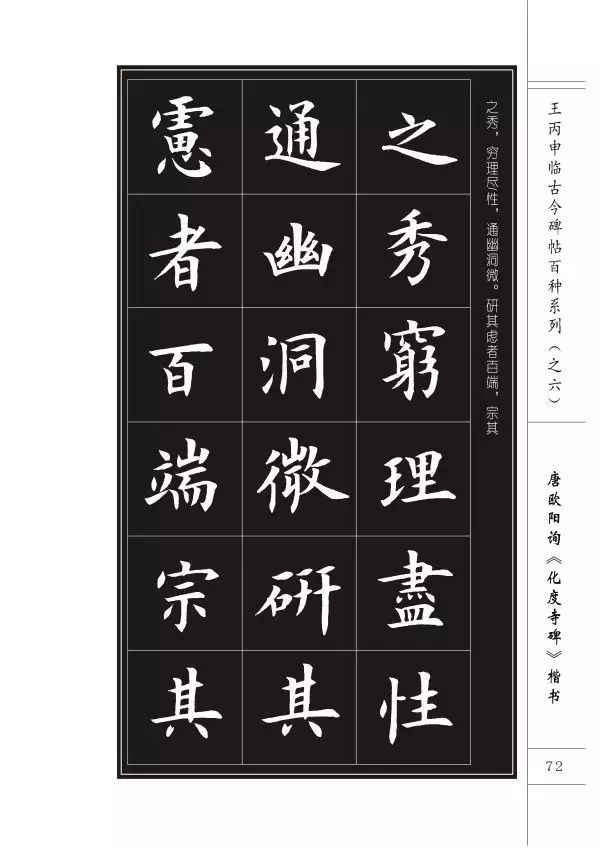 王丙申临古今碑帖百种系列（之六）
唐欧阳询《化度寺碑》楷书
72
之秀，穷理尽性，通幽洞微。研其虑者百端，宗其
之秀窮理盡性
通幽洞微研其
慮者百端宗其